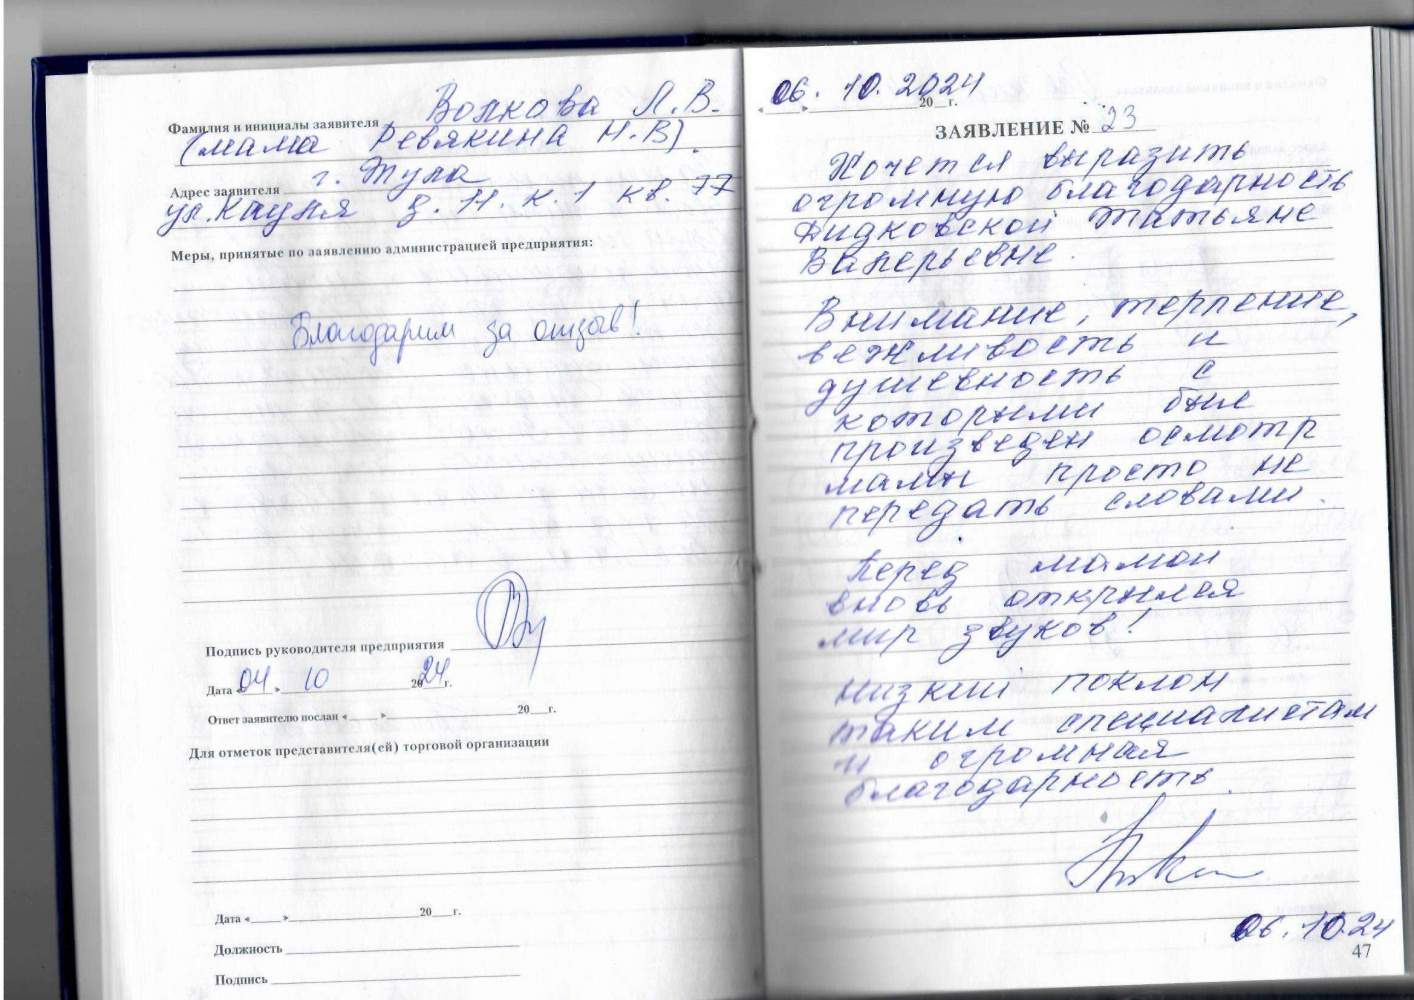 Волкова Л.В.
Фамилия и инициалы заявителя
(мама Ревякина Н.В).
Адрес заявителя г. Тула
ул. Кауля д. 11. к. 1 кв. 77
Меры, принятые по заявлению администрацией предприятия:
Благодарим за отзыв!
Подпись руководителя предприятия
Дата «04 » 10 2024г.
Ответ заявителю послан « » 20 г.
Для отметок представителя(ей) торговой организации
Дата « » 20 г.
Должность
Подпись
06. 10. 2024
« » 20 г.
ЗАЯВЛЕНИЕ № 23
Хочется выразить
огромную благодарность
Дидковской Татьяне
Валерьевне.
Внимание, терпение,
вежливость и
душевность с
которыми был
произведен осмотр
мамы просто не
передать словами.
Перед мамой
вновь открылся
мир звуков!
Низкий поклон
таким специалистам
и огромная
благодарность.
06.10.24
47